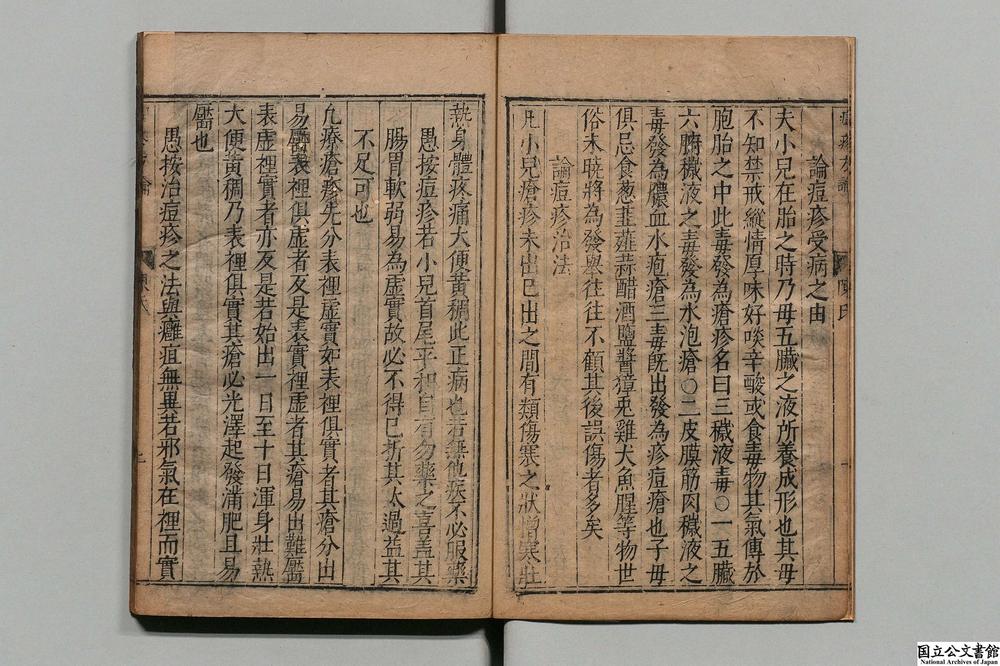 論痘疹受病之由
夫小兒在胎之時乃毋五臟之液所養成形也其毋
不知禁戒縱情厚味好啖辛酸或食毒物其氣傳於
胞胎之中此毒發為瘡疹名曰三穢液毒〇一五臟
六腑穢液之毒發為水泡瘡〇二皮膜筋肉穢液之
毒發為膿血水疱瘡三毒既出發為疹痘瘡也子毋
俱忌食葱韭薤蒜醋酒鹽醬獐兎雞犬魚腥等物世
俗未暁將為發舉往往不顧其後誤傷者多矣
論痘疹治法
凡小兒瘡疹未出已出之間有類傷寒之狀憎寒壯
熱身體疼痛大便黃稠此正病也若無他疾不必服藥
愚按痘疹若小兒首尾平和自有勿藥之喜盖其
腸胃軟弱易為虛實故必不得已折其太過益其
不足可也
凡療瘡疹先分表裡虛實如表裡俱實者其瘡分出
易靨表裡俱虛者反是表實裡虛者其瘡易出難靨
表虛裡實者亦反是若始出一日至十日渾身壯熱
大便黃稠乃表裡俱實其瘡必光澤起發滿肥且易
靨也
愚按治痘疹之法與癰疽無異若邪氣在裡而實
国立公文書館
National Archives of Japan